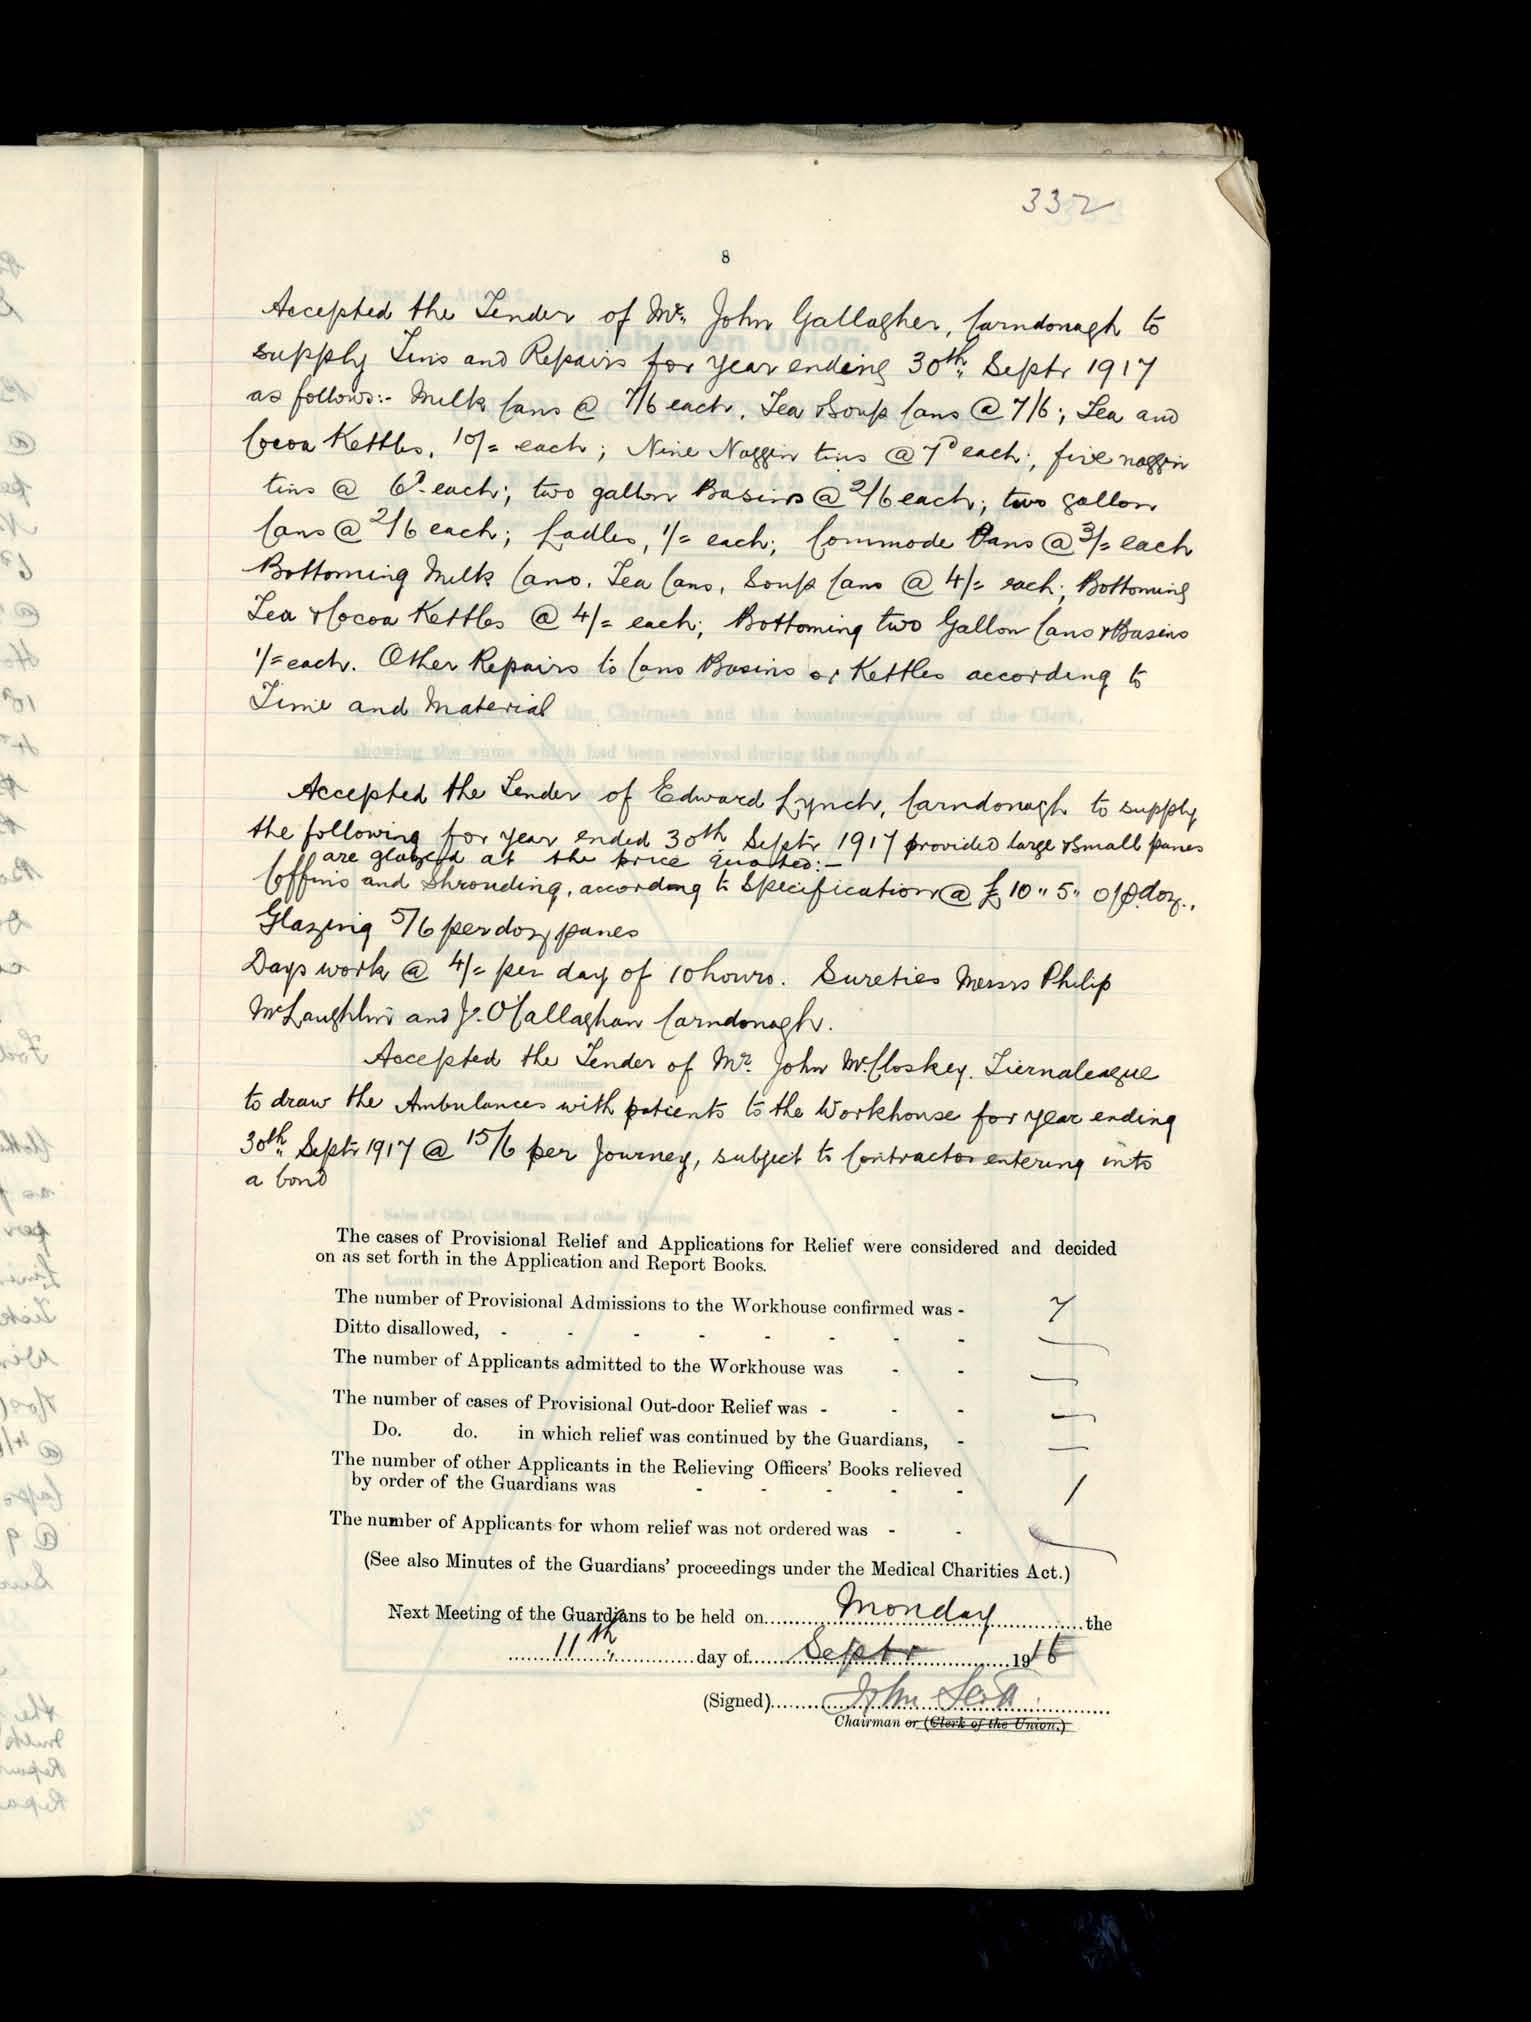 332
8
Accepted the Tender of Mr. John Gallagher, Carndonagh to
supply Tins and Repairs for year ending 30th Septr 1917
as follows:- Milk Cans @ 7/6 each. Tea & Soup Cans @ 7/6; Tea and
Cocoa Kettles, 10/= each; Nine Noggin tins @ 7d each; five noggin
tins @ 6d each; two gallon Basins @ 2/6 each; two gallon
Cans @ 2/6 each; Ladles, 1/= each; Commode Pans @ 3/= each
Bottoming Milk Cans. Tea Cans, Soup Cans @ 4/= each; Bottoming
Tea & Cocoa Kettles @ 4/= each; Bottoming two Gallon Cans & Basins
1/= each. Other Repairs to Cans Basins or Kettles according to
Time and Material
Accepted the Tender of Edward Lynch, Carndonagh to supply
the following for year ended 30th Septr 1917 provided large & small panes
are glazed at the price quoted:-
Coffins and Shrouding, according to Specification @ £10 " 5 " 0 p doz.,
Glazing 5/6 per doz panes
Days work @ 4/= per day of 10 hours. Sureties Messrs Philip
McLaughlin and J. O'Callaghan Carndonagh.
Accepted the Tender of Mr. John McCloskey. Tiernaleague
to draw the Ambulances with patients to the Workhouse for year ending
30th Septr 1917 @ 15/6 per Journey, subject to Contractor entering into
a bond
The cases of Provisional Relief and Applications for Relief were considered and decided
on as set forth in the Application and Report Books.
The number of Provisional Admissions to the Workhouse confirmed was - 7
Ditto disallowed, - - - - - - - - —
The number of Applicants admitted to the Workhouse was - - —
The number of cases of Provisional Out-door Relief was - - - —
Do. do. in which relief was continued by the Guardians, - —
The number of other Applicants in the Relieving Officers' Books relieved
by order of the Guardians was - - - - - 1
The number of Applicants for whom relief was not ordered was - - —
(See also Minutes of the Guardians' proceedings under the Medical Charities Act.)
Next Meeting of the Guardians to be held on Monday the
11th day of Septr 1916
(Signed) John
Chairman or (Clerk of the Union.)